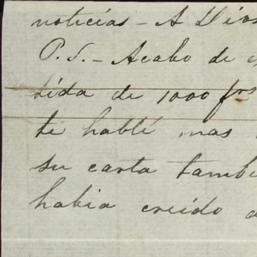 noticias - A Dios
P.S. - Acabo de
tida de 1000 frs
te hablé mas
su carta tambi
habia creido